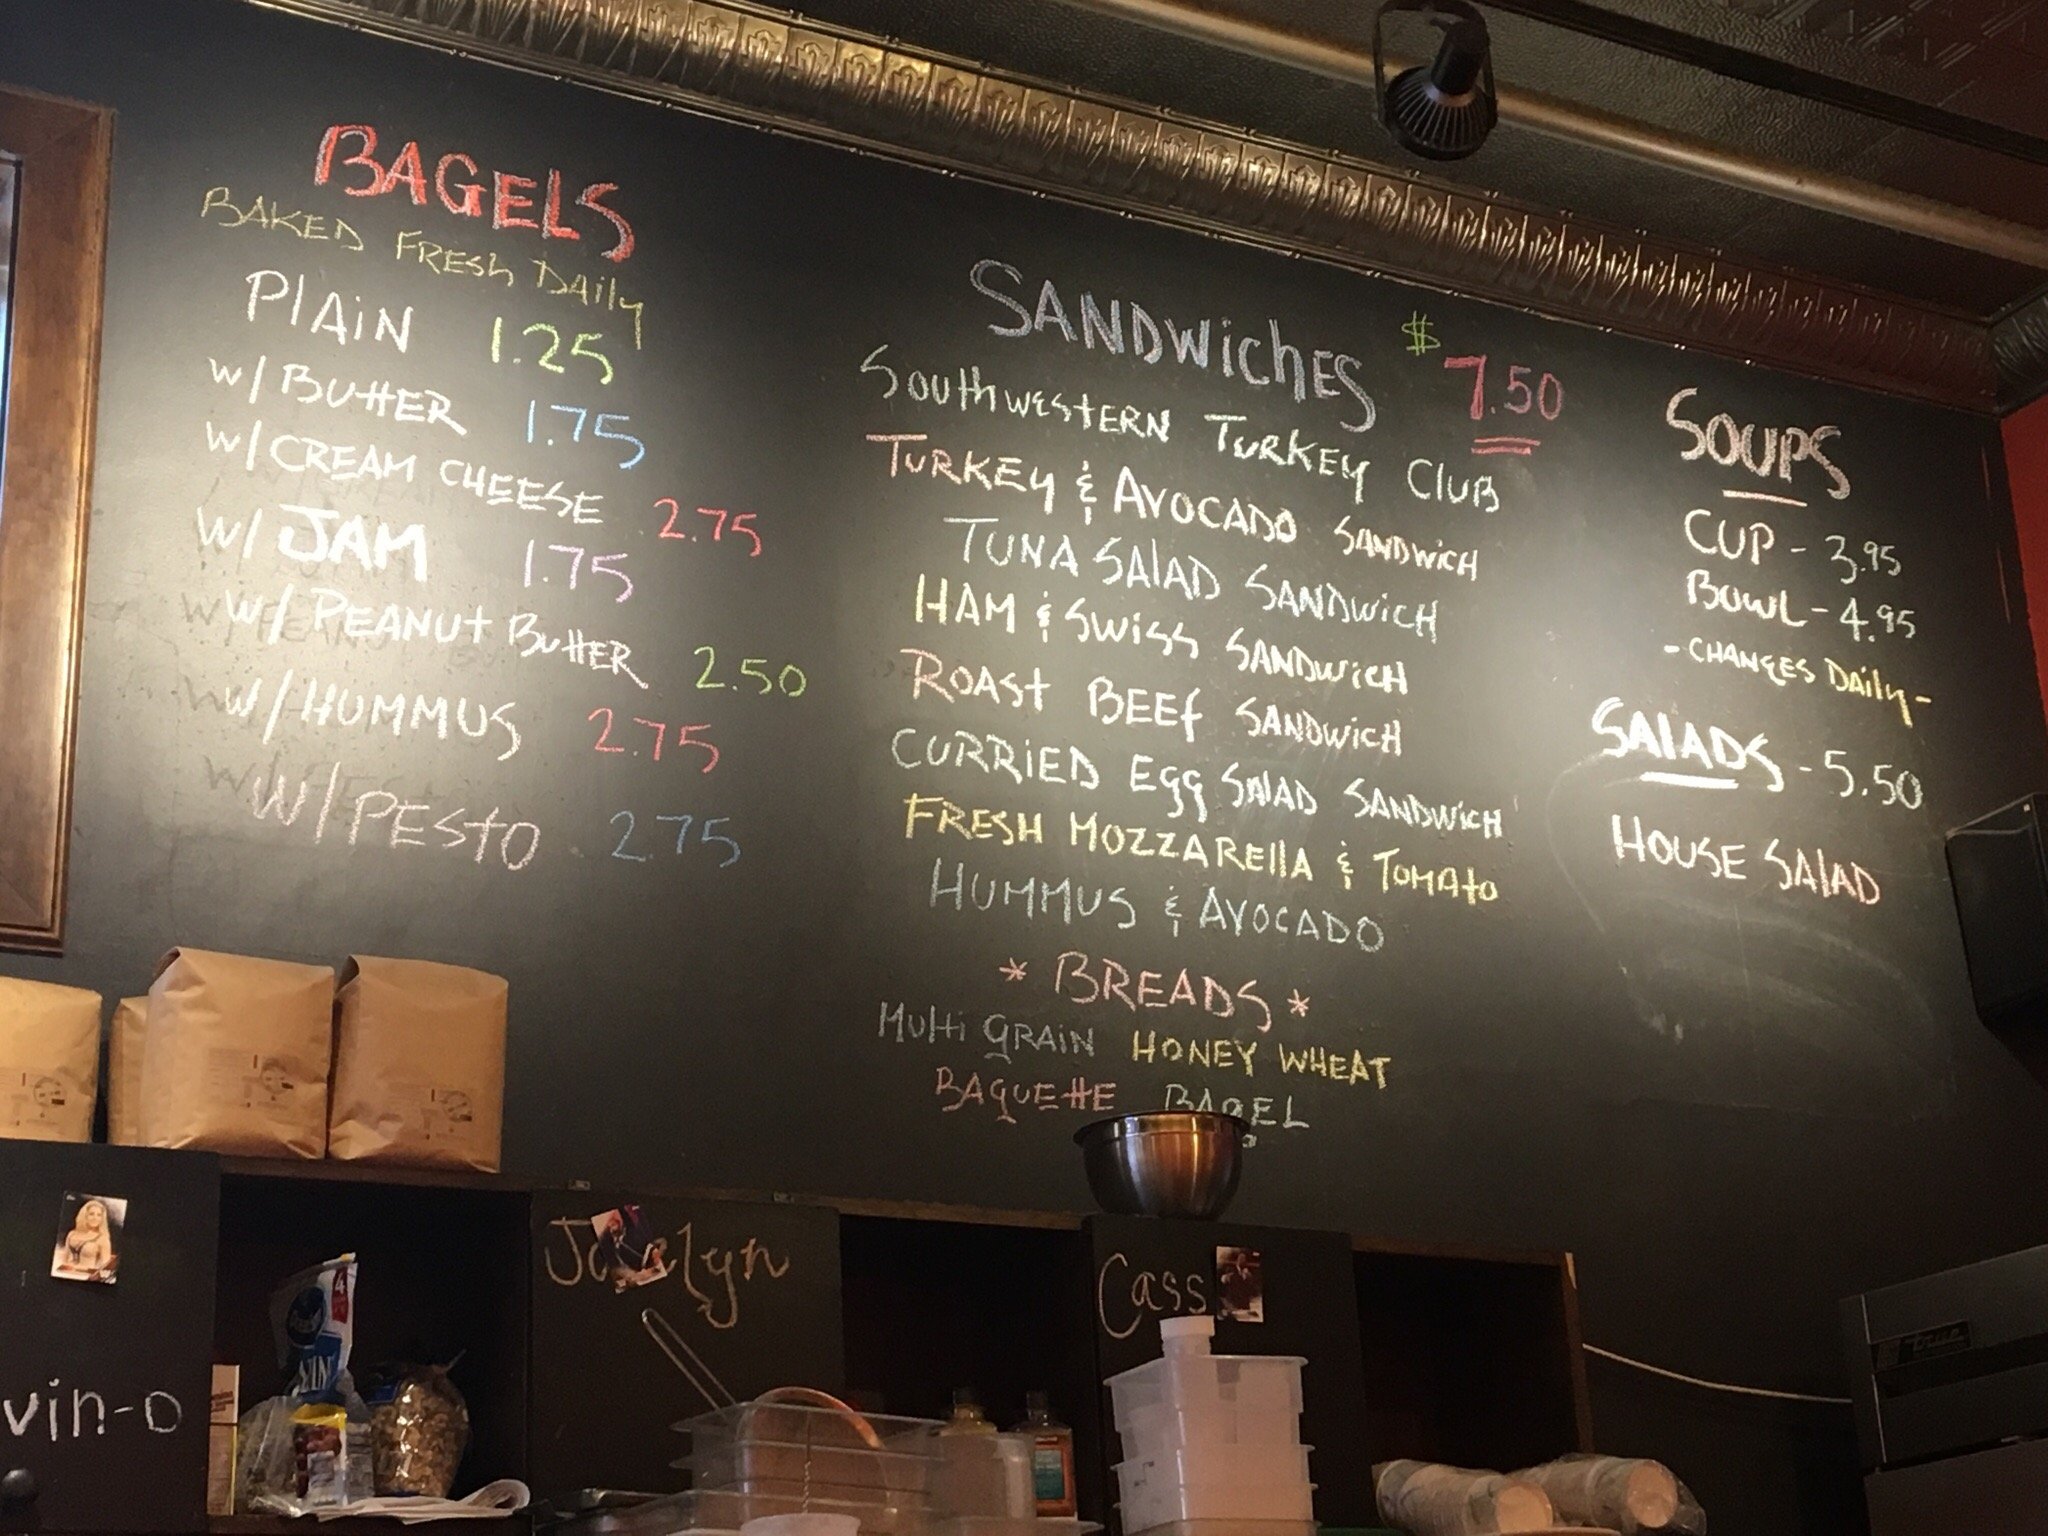 BAGELS
BAKED FRESH DAily
PlAiN 1.25
w/ BUttER 1.75
w/ CREAM CHEESE 2.75
w/ JAM 1.75
w/ PEANUt ButtER 2.50
w/ HUMMUS 2.75
W/ PEStO 2.75
SANDWichES $7.50
SOUthwEStERN TURKEY ClUB
TURKEY & AVOCADO SANDWiCH
TUNA SAlAD SANDWiCH
HAM & SWiSS SANDWiCH
ROASt BEEf SANDWiCH
CURRiED Egg SAlAD SANDWiCH
FRESH MOZZAREllA & TOMAtO
HUMMUS & AVOCADO
* BREADS *
MUlti GRAiN HONEY WHEAT
BAQUEttE BAGEL
SOUPS
CUP - 3.95
BOWL - 4.95
- CHANGES DAily -
SAlADS - 5.50
HOUSE SAlAD
vin-o
Jocelyn
Cass